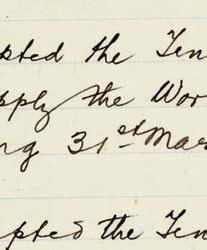 epted the Ten
upply the Wor
ing 31st Mar
epted the Ten